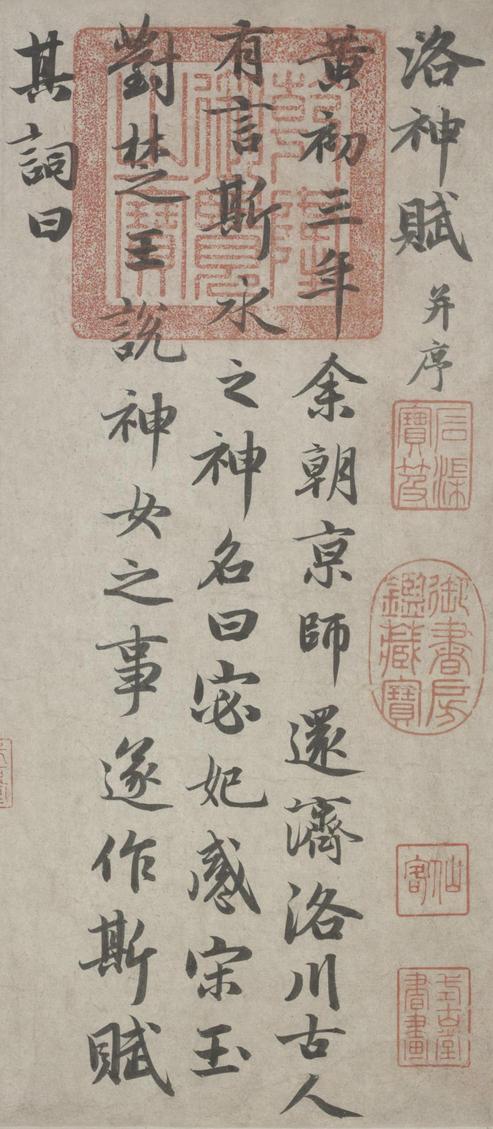 洛神賦 并序
黃初三年余朝亰師還濟洛川古人
有言斯水之神名曰宓妃感宋玉
對楚王說神女之事遂作斯賦
其詞曰
石渠寶笈
御書房鑑藏寶
仙客
式古堂書畫